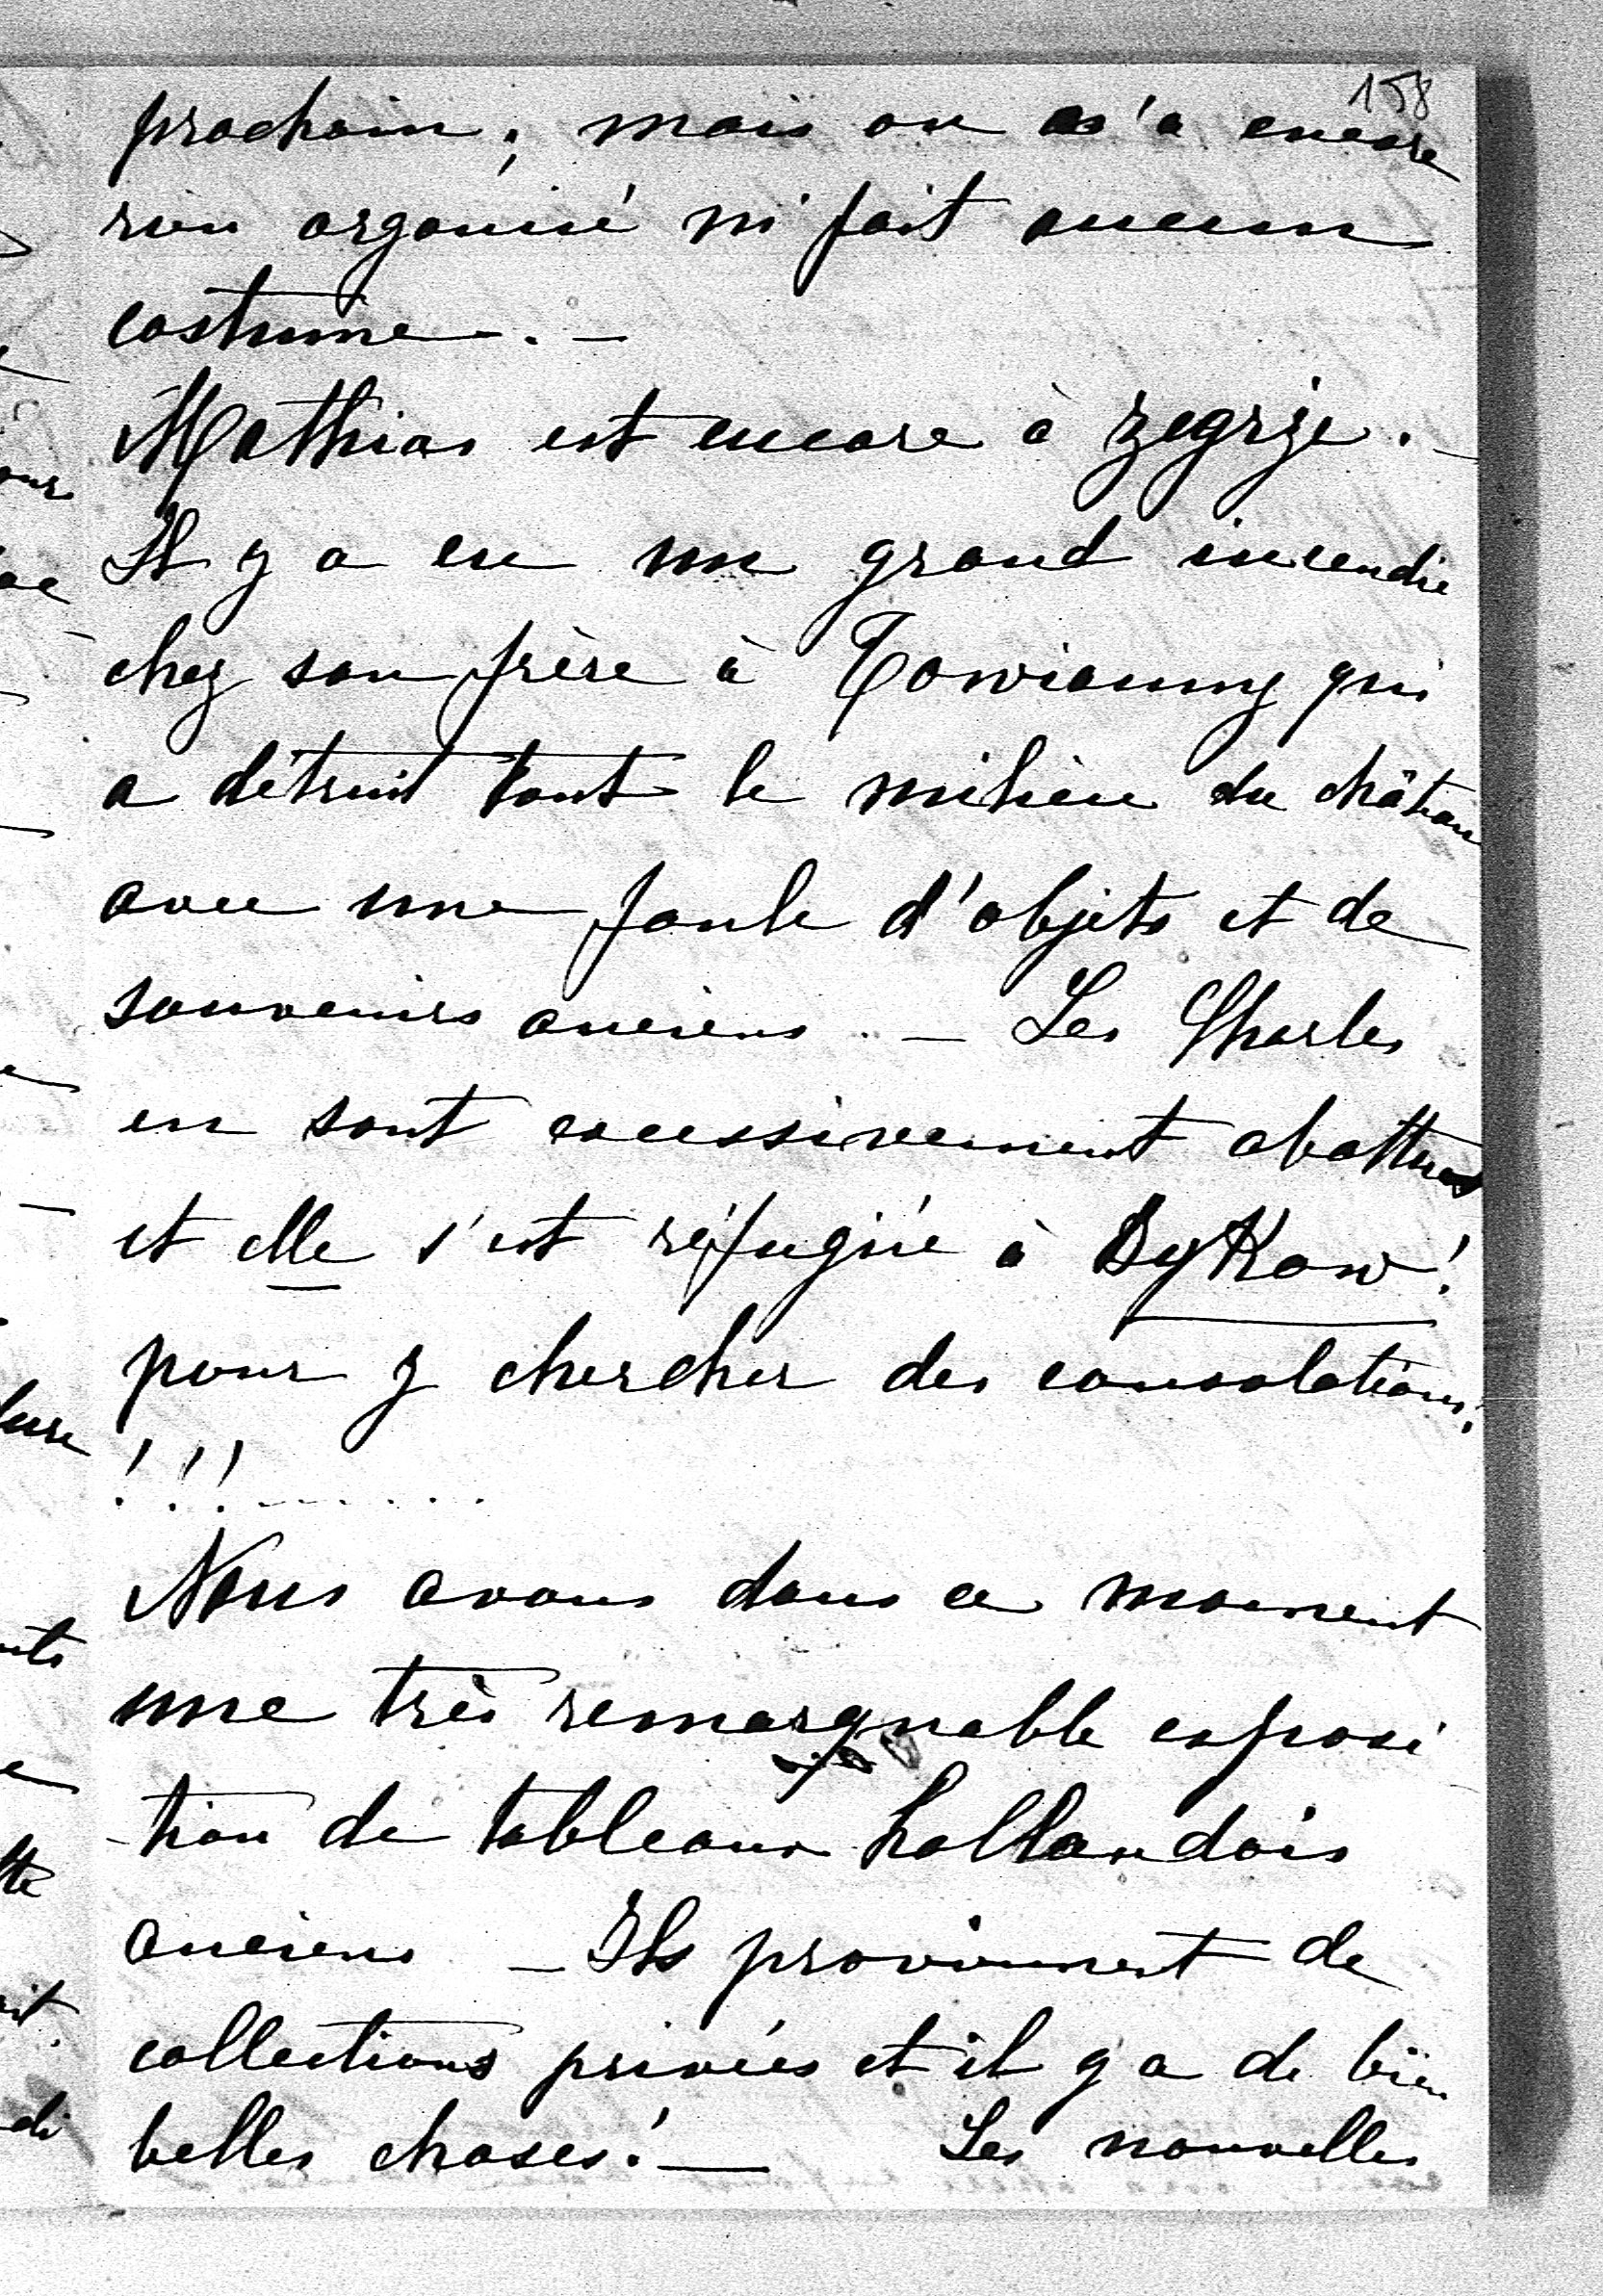 158
prochain; mais on n'a encore
rien organisé ni fait aucun
costume. —
Mathias est encore à Zegrze. —
Il y a eu un grand incendie
chez son frère à Towianny qui
a détruit tout le milieu du château
avec une foule d'objets et de
souvenirs anciens. — Les Charles
en sont excessivement abattus
et elle s'est réfugiée à Dykow!
pour y chercher des consolations;
!!!.......
Nous avons dans ce moment
une très remarquable exposi
-tion de tableaux hollandais
anciens — Ils proviennent de
collections privées et il y a de bien
belles choses! — Les nouvelles